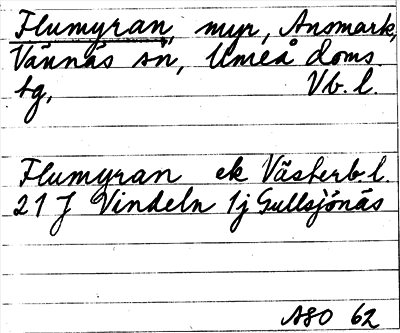 Flumyran, myr, Ansmark,
Vännäs sn, Umeå doms.
tg, Vb. l.
Flumyran ek Västerb l.
21 J Vindeln 1j Gullsjönäs
ASO 62